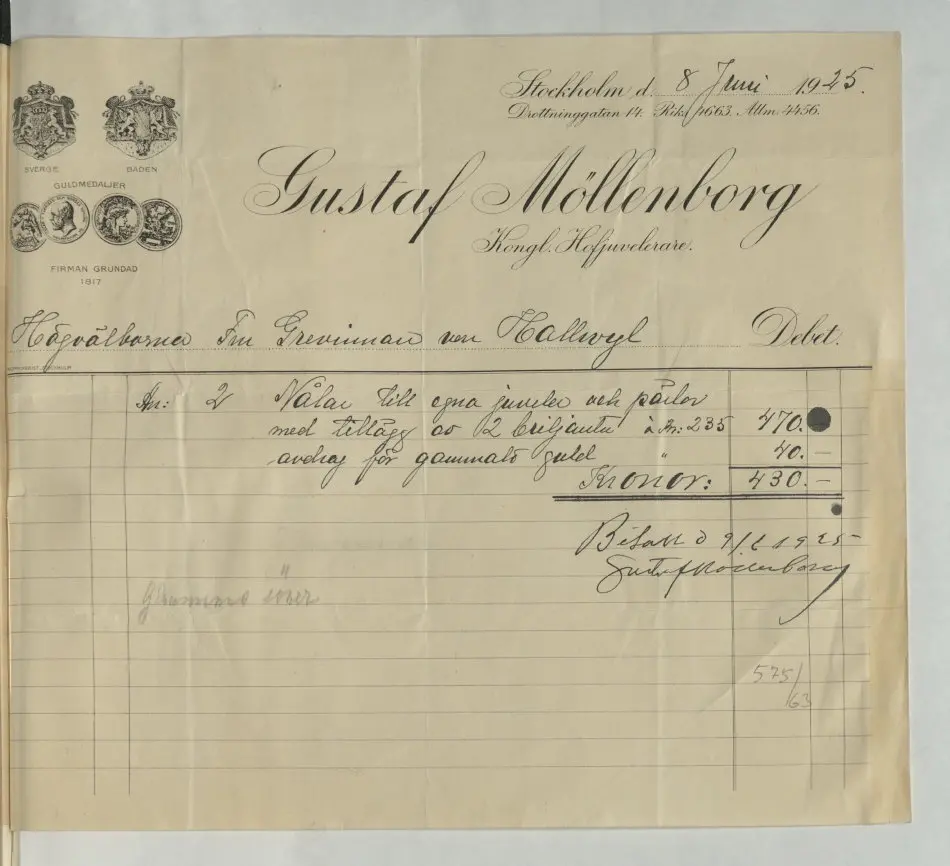 Stockholm d. 8 Juni 1925.
Drottninggatan 14. Riks. 1663. Allm. 4456.
SVERGE. BADEN
GULDMEDALJER
Gustaf Möllenborg
Kongl. Hofjuvelerare.
FIRMAN GRUNDAD
1817
Högvälborna Fru Grevinnan von Hallwyl Debet.
2 Nålar till egna juveler och pärlor
med tillägg av 2 briljanter à Kr: 235 470.
avdrag för gammalt guld " 40. —
Kronor: 430. —
Betalt d 9/6 1925
Gustaf Möllenborg
575/
63